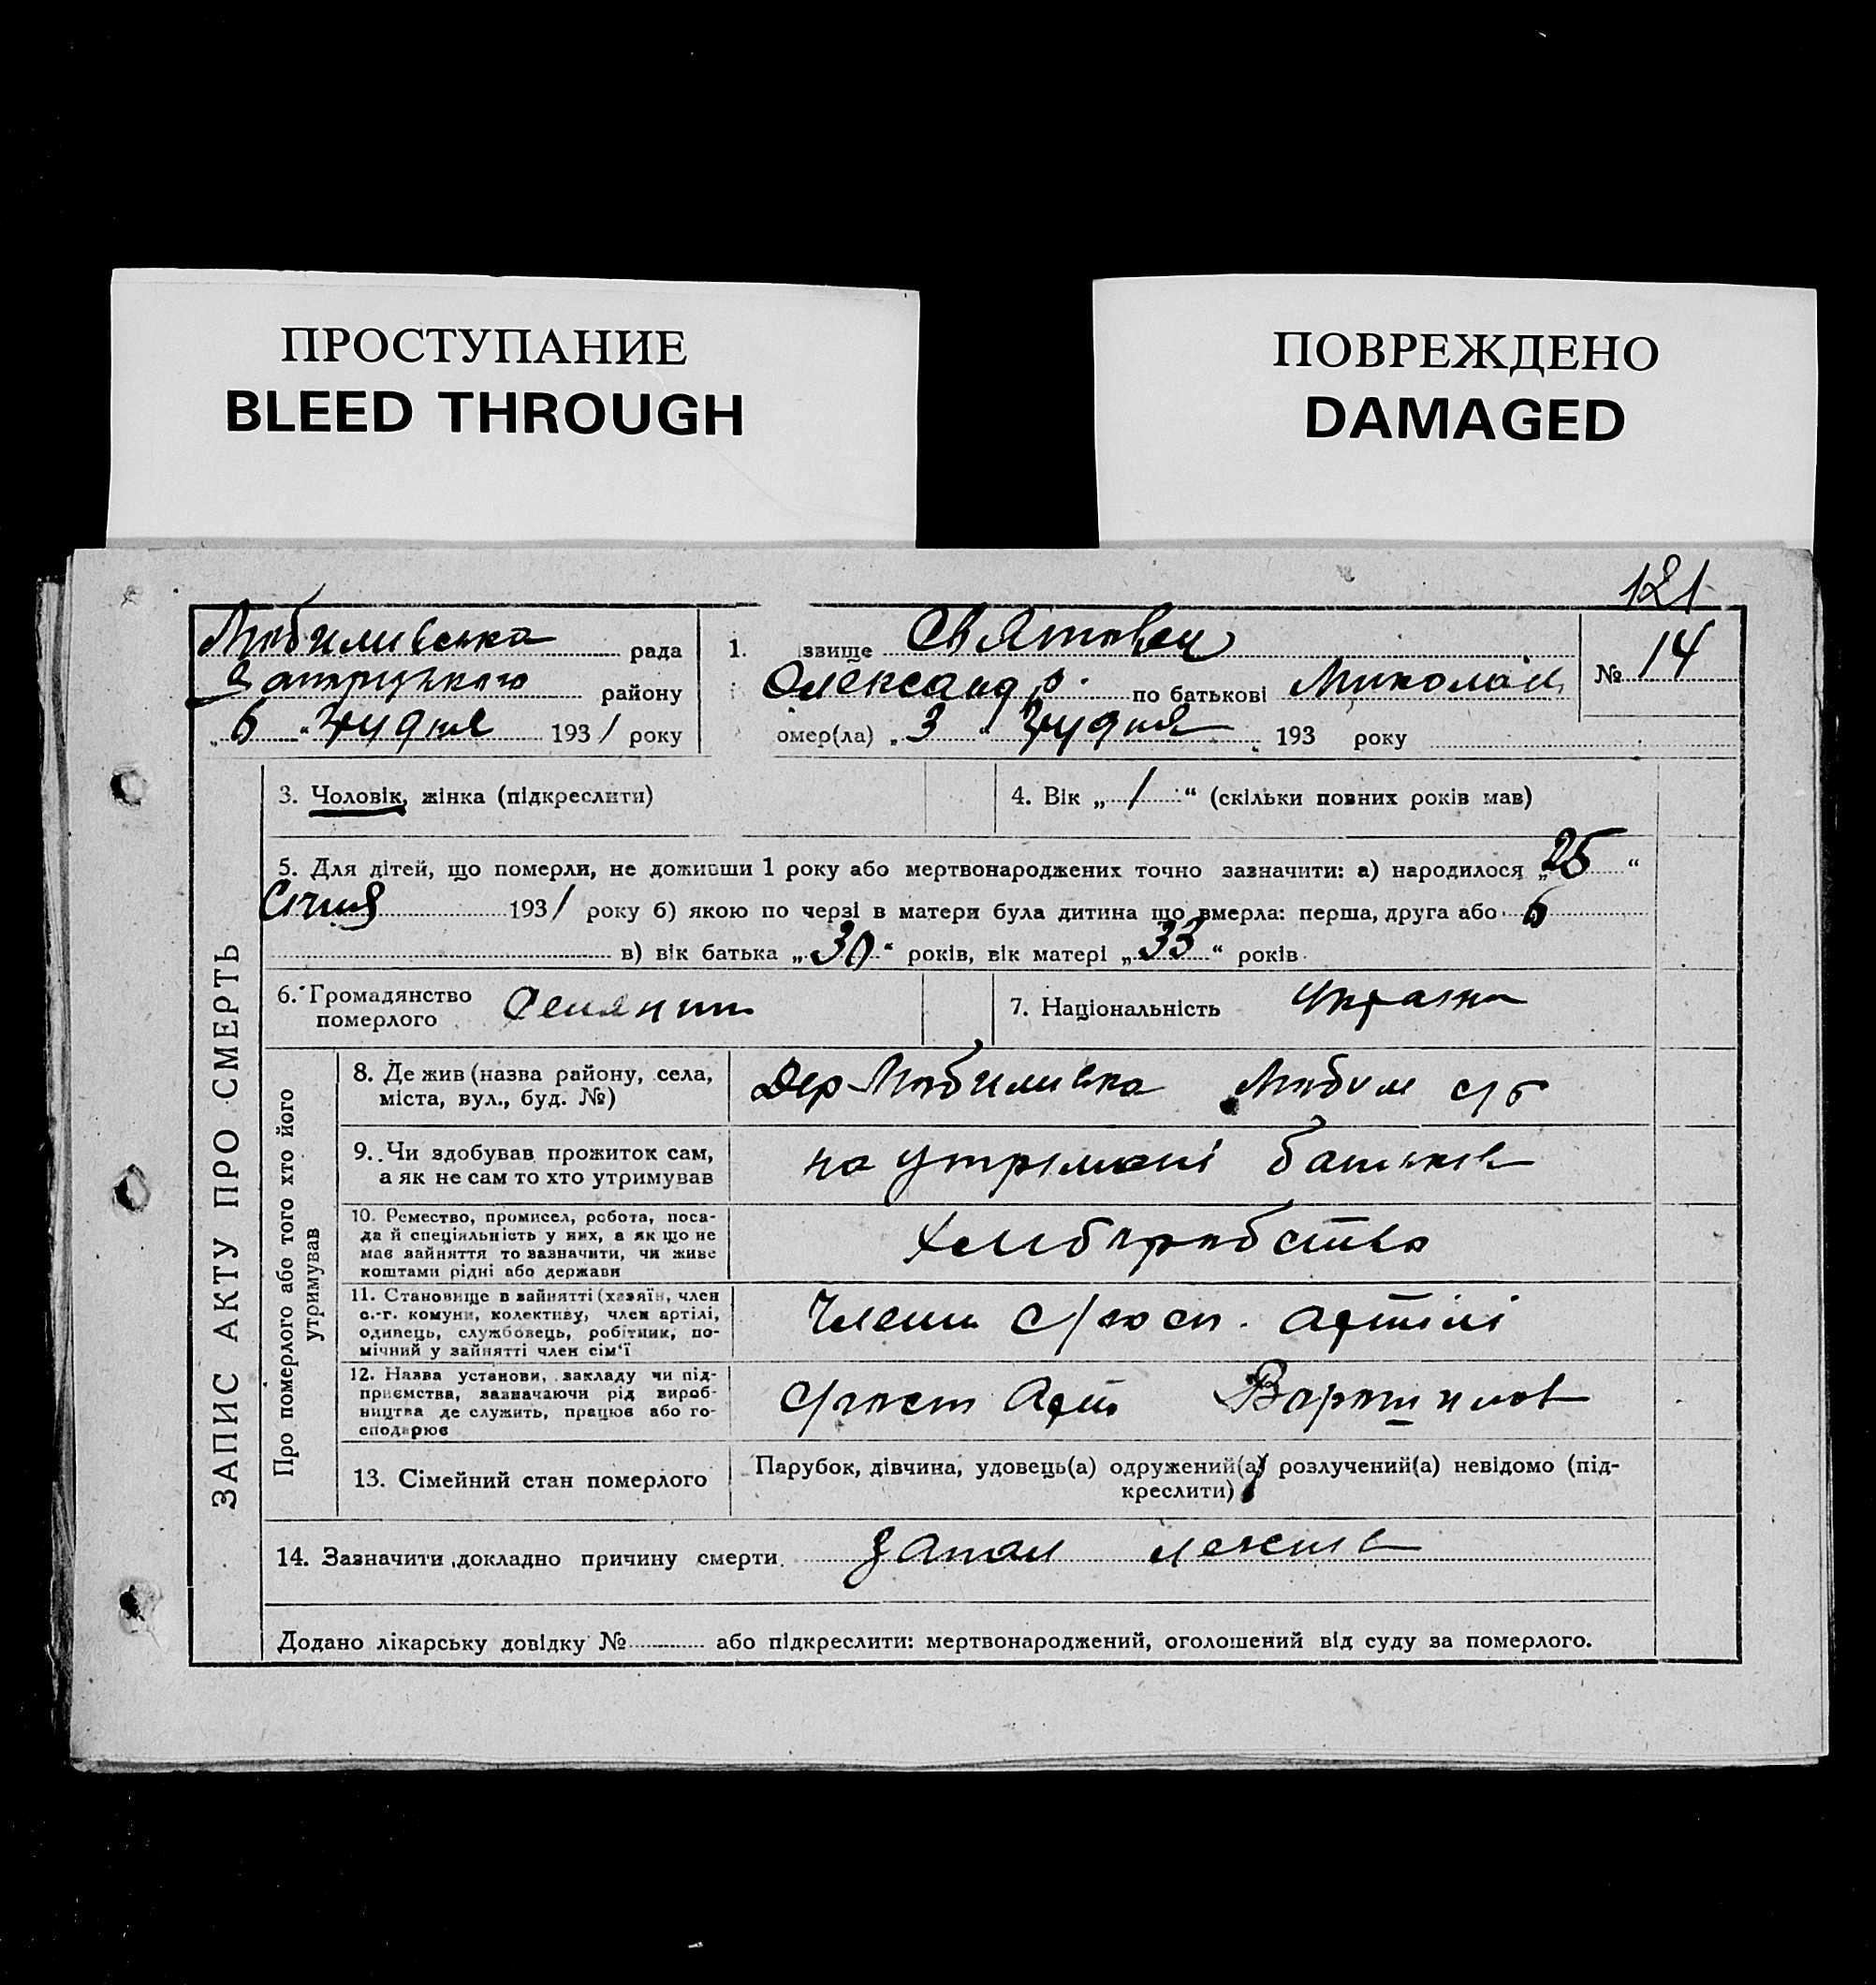 ПРОСТУПАНИЕ
BLEED THROUGH
ПОВРЕЖДЕНО
DAMAGED
121
рада
району
„ 6 " Грудня 1931 року
1. звище Святовец
Олександр. по батькові Миколай
омер(ла) „ 3 " Грудня 193 року
№ 14
ЗАПИС АКТУ ПРО СМЕРТЬ
3. Чоловік, жінка (підкреслити)
4. Вік „ 1 “ (скільки повних років мав)
5. Для дітей, що померли, не доживши 1 року або мертвонароджених точно зазначити: а) народилося „ 25 “
Січня 1931 року б) якою по черзі в матери була дитина що вмерла: перша, друга або 6
в) вік батька „ 30 “ років, вік матері „ 33 “ років
6. Громадянство
померлого Селянин
7. Національність
Про померлого або того хто його
утримував
8. Де жив (назва району, села,
міста, вул., буд. №)
Дер с/б
9. Чи здобував прожиток сам,
а як не сам то хто утримував
на утримані батьків
10. Ремество, промисел, робота, поса-
да й спеціяльність у них, а як що не
має зайняття то зазначити, чи живе
коштами рідні або держави
11. Становище в зайнятті (хазяїн, член
с.-г. комуни, колективу, член артілі,
одинець, службовець, робітник, по-
мічний у зайнятті член сім'ї
Член с/госп. артілі
12. Назва установи, закладу чи під-
приємства, зазначаючи рід вироб-
ництва де служить, працює або го-
сподарює
с/госп Арт Ворошилов
13. Сімейний стан померлого
Парубок, дівчина, удовець(а) одружений(а) розлучений(а) невідомо (під-
креслити)
14. Зазначити докладно причину смерти. Запал легенів
Додано лікарську довідку № або підкреслити: мертвонароджений, оголошений від суду за померлого.